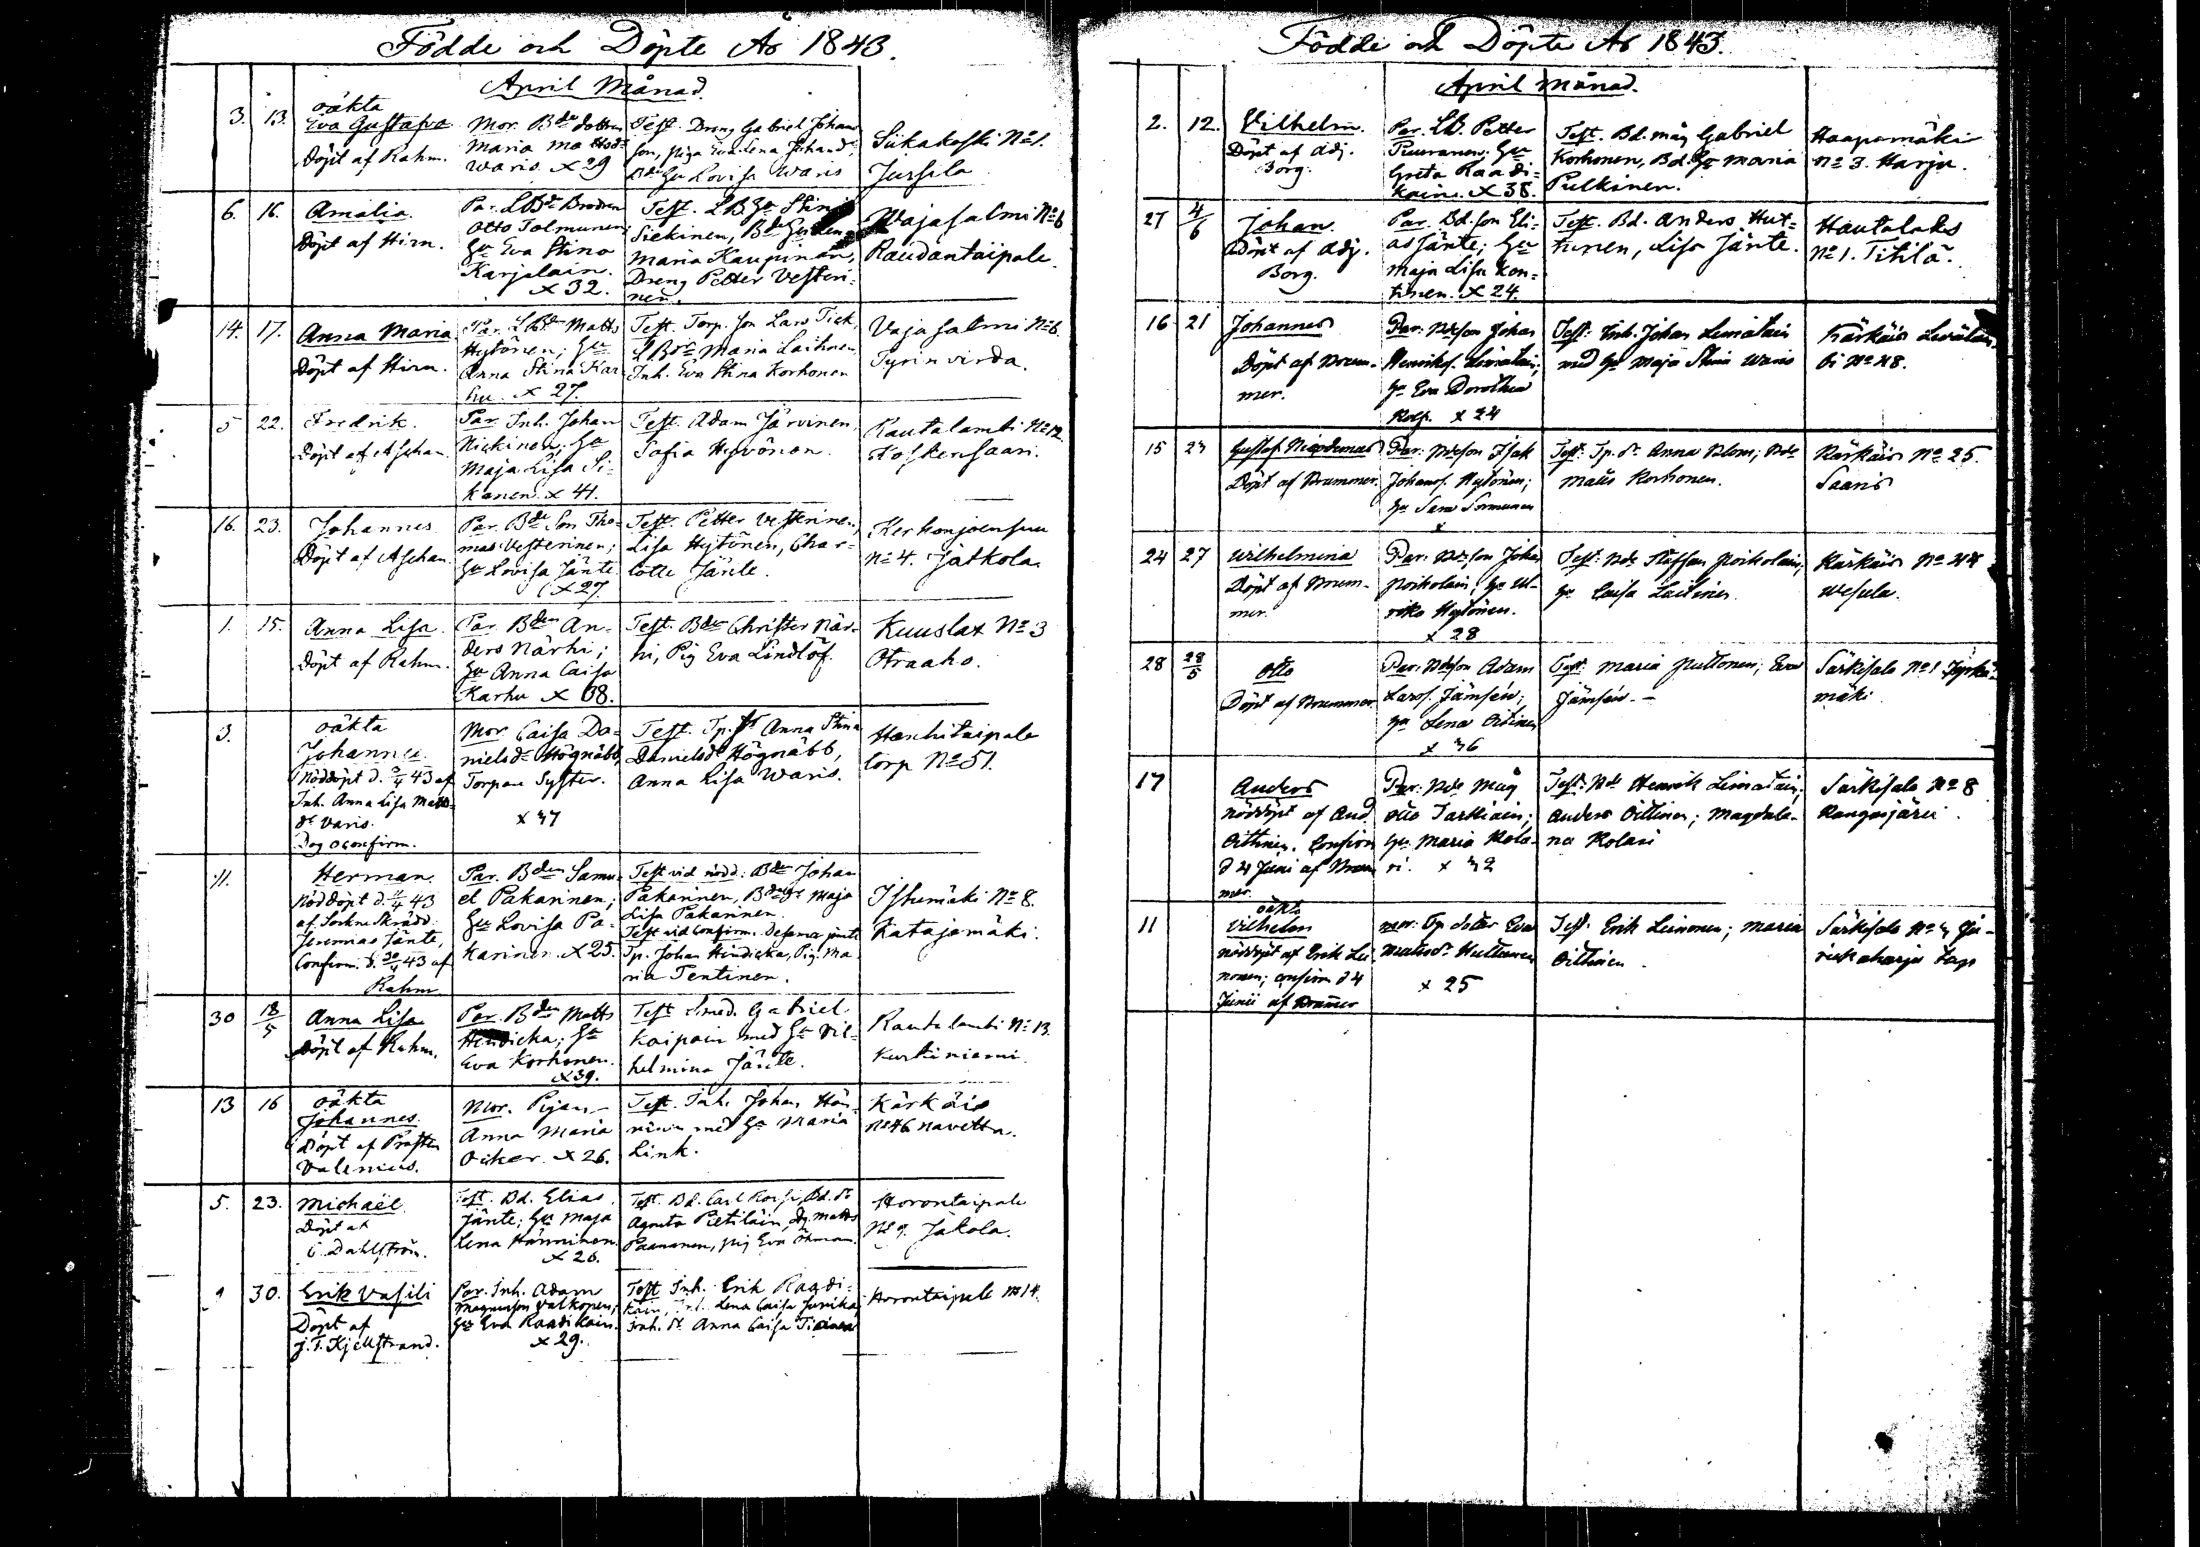 Födde och Döpte År 1843.
April Månad.
3. 13. oäkta
Eva Gustafva
Döpt af Rahm.
Mor. Bde dottren
Maria Mattsdr
Waris. x 29
Test. Dreng Gabriel Johans
son, piga Eva Lena Johansd.
Gu Lovisa Waris
Siikakoski No 1.
Jussila
6. 16. Amalia.
Döpt af Hirn.
Par. LBde Brodren
Otto Tolmunen
Gu Eva Stina
Karjalain.
x 32.
Test. LB Gu Stina
Siekinen, Bde
Maria Kaupinen,
Dreng Petter Vesteri-
nen.
Wajasalmi No 6
Raudantaipale.
14. 17. Anna Maria
Döpt af Hirn.
Par. LBde Matts
Hytönen; Gu
Anna Stina Kar
hu. x 27.
Test. Torp. son Lars Tick,
LBde Maria Laitinen
Inh. Eva Stina Korhonen
Vajasalmi No 6.
Tyrinvirda.
5 22. Fredrik.
Döpt af Aschan.
Par Inh. Johan
Nickinen. Gu
Maja Lisa Si-
kanen. x 41.
Test. Adam Järvinen,
Sofia Hyvönen.
Rautalambi No 12.
Koskensaari.
16. 23. Johannes
Döpt af Aschan.
Par. Bde Son Tho-
mas Vesterinen;
Gu Lovisa Jänte
x 27
Test. Petter Vesterinen,
Lisa Hytönen, Char-
lotte Jänte.
Kerkonjoensuu
No 4. Jatkola
1. 15. Anna Lisa.
Döpt af Rahm.
Par Bden An-
ders Närhi;
Gu Anna Caisa
Karhu x 38.
Test. Bde Christer När-
hi, Pig Eva Lindlöf.
Kuuslax No 3
Otraaho.
3. oäkta
Johannes
Nöddöpt d. 3/4 43 af
Inh. Anna Lisa Matts-
dr Varis.
Dog oconfirm.
Mor Caisa Da-
nielsdr Högnäbb,
Torpare Syster.
x 37
Test. Tp. dr Anna Stina
Danielsdr Högnäbb,
Anna Lisa Waris.
Hanhitaipale
torp No 51.
11. Herman.
Nöddöpt d. 11/4 43
af Sockne Skrädd.
Jeremias Jänte,
Confirm. d. 30/4 43 af
Rahm
Par. Bden Samu
el Pakarinen;
Gu Lovisa Pa-
karinen. x 25.
Test vid nödd. Bde Johan
Pakarinen, Bde Gu Maja
Lisa Pakarinen.
Test vid Confirm. Desama jemte
Tp. Johan Hindicka, Pig. Ma
ria Tentinen.
Istumäki No 8.
Katajamäki.
30 18/5 Anna Lisa
Döpt af Rahm.
Par. Bden Matts
Hindicka; Gu
Eva Korhonen.
x 39.
Test Smed. Gabriel
Kaipain med Gu Vil-
helmina Jänte.
Rautalambi No 13.
Kurkiniemi.
13 16 oäkta
Johannes.
Döpt af Prosten
Valenius.
Mor. Pigan
Anna Maria
Oicker. x 26.
Test. Inh. Johan Hän-
ninen med Gu Maria
Link.
Kärkäis
No 46 Navetta.
5. 23. Michaël
Döpt af
C. Dahlström.
Test. Bd. Elias
Jänte; Gu Maja
Lena Hänninen.
x 26.
Test. Bd. Carl Korsi, Bd. dr
Agneta Pietiläin, dg. Matts
Paananen, pig Eva Öhman.
Horontaipale
No 9. Jakola.
9 30. Erik Vasili
Döpt af
J. F. Kjellstrand.
Par. Inh. Adam
Magnusson Valkonen;
Gu Eva Raadikain.
x 29.
Test Inh. Erik Raadi-
kain, Inh. Lena Caisa Junika
inh. dr Anna Caisa
Horontaipale No 14.
Födde och Döpte År 1843.
April Månad.
2. 12. Vilhelm.
Döpt af Adj.
Borg.
Par. LB. Petter
Puuranen. Gu
Greta Raadi-
kain. x 38.
Test. Bd. måg Gabriel
Korhonen, Bd. Gu Maria
Pulkinen.
Haapamäki
No 3. Harju.
27 4/6 Johan
Döpt af Adj.
Borg.
Par. Bd. son Eli-
as Jänte; Gu
Maja Lisa Kon-
tinen. x 24.
Test. Bd. Anders Hut-
tunen, Lisa Jänte.
Hautalaks
No 1. Titilä.
16 21 Johannes
Döpt af Brum-
mer.
Par: Bdeson Johan
Henriks. Limatain;
Gu Eva Dorothea
Rolf. x 24
Test: Inh. Johan Limatain
med Gu Maja Stina Waris
Kärkäis Levälam-
bi No 48.
15 23 Gustaf Nicodemus
Döpt af Brummer.
Par: Bdeson Isak
Johans. Hytönen;
Gu Sara Sormunen
x
Test: Tp. dr Anna Blom; Bde
Matts Korhonen.
Kärkäis No 25.
Saaris
24 27 Wilhelmina
Döpt af Brum-
mer.
Par: Bdeson Johan
Poikolain; Gu Ul-
rika Hytönen.
x 28
Test: Bde Staffan Poikolain;
Gu Caisa Laitinen.
Kärkäis No 44
Wesula.
28 28/5 Otto
Döpt af Brummer
Par: Bdeson Adam
Larss. Jämsén;
Gu Lena Oitinen
x 36
Test: Maria Puttonen; Eva
Jämsén. —
Särkisalo No 1
mäki
17 Anders
Nöddöpt af And.
Oittinen. Confirm
d 4 Juni af Brum
mer.
Par: Bde Måg
Otto Tarkiain;
Gu Maria Kola-
ri. x 32
Test: Bde Henrik Limatain;
Anders Oittinen; Magdale-
na Kolari
Särkisalo No 8
Kangasjärvi.
11 oäkta
Vilhelm
nöddöpt af Erik Lei
nonen; confirm d 4
Junii af Brummer
Mor: Tp dotter Eva
Mattsdr Huttunen
x 25
Test. Erik Leinonen; Maria
Oittinen.